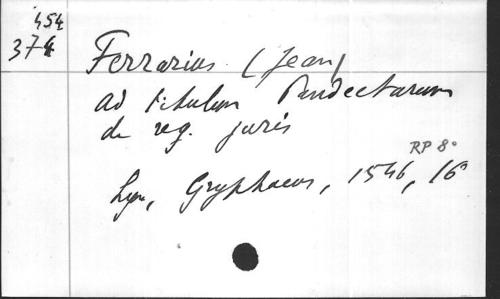 454
374
Ferrarius (Jean)
ad titulum Pandectarum
de reg. juris
RP 8°
Lyon, Gryphaeus, 1546, 16°